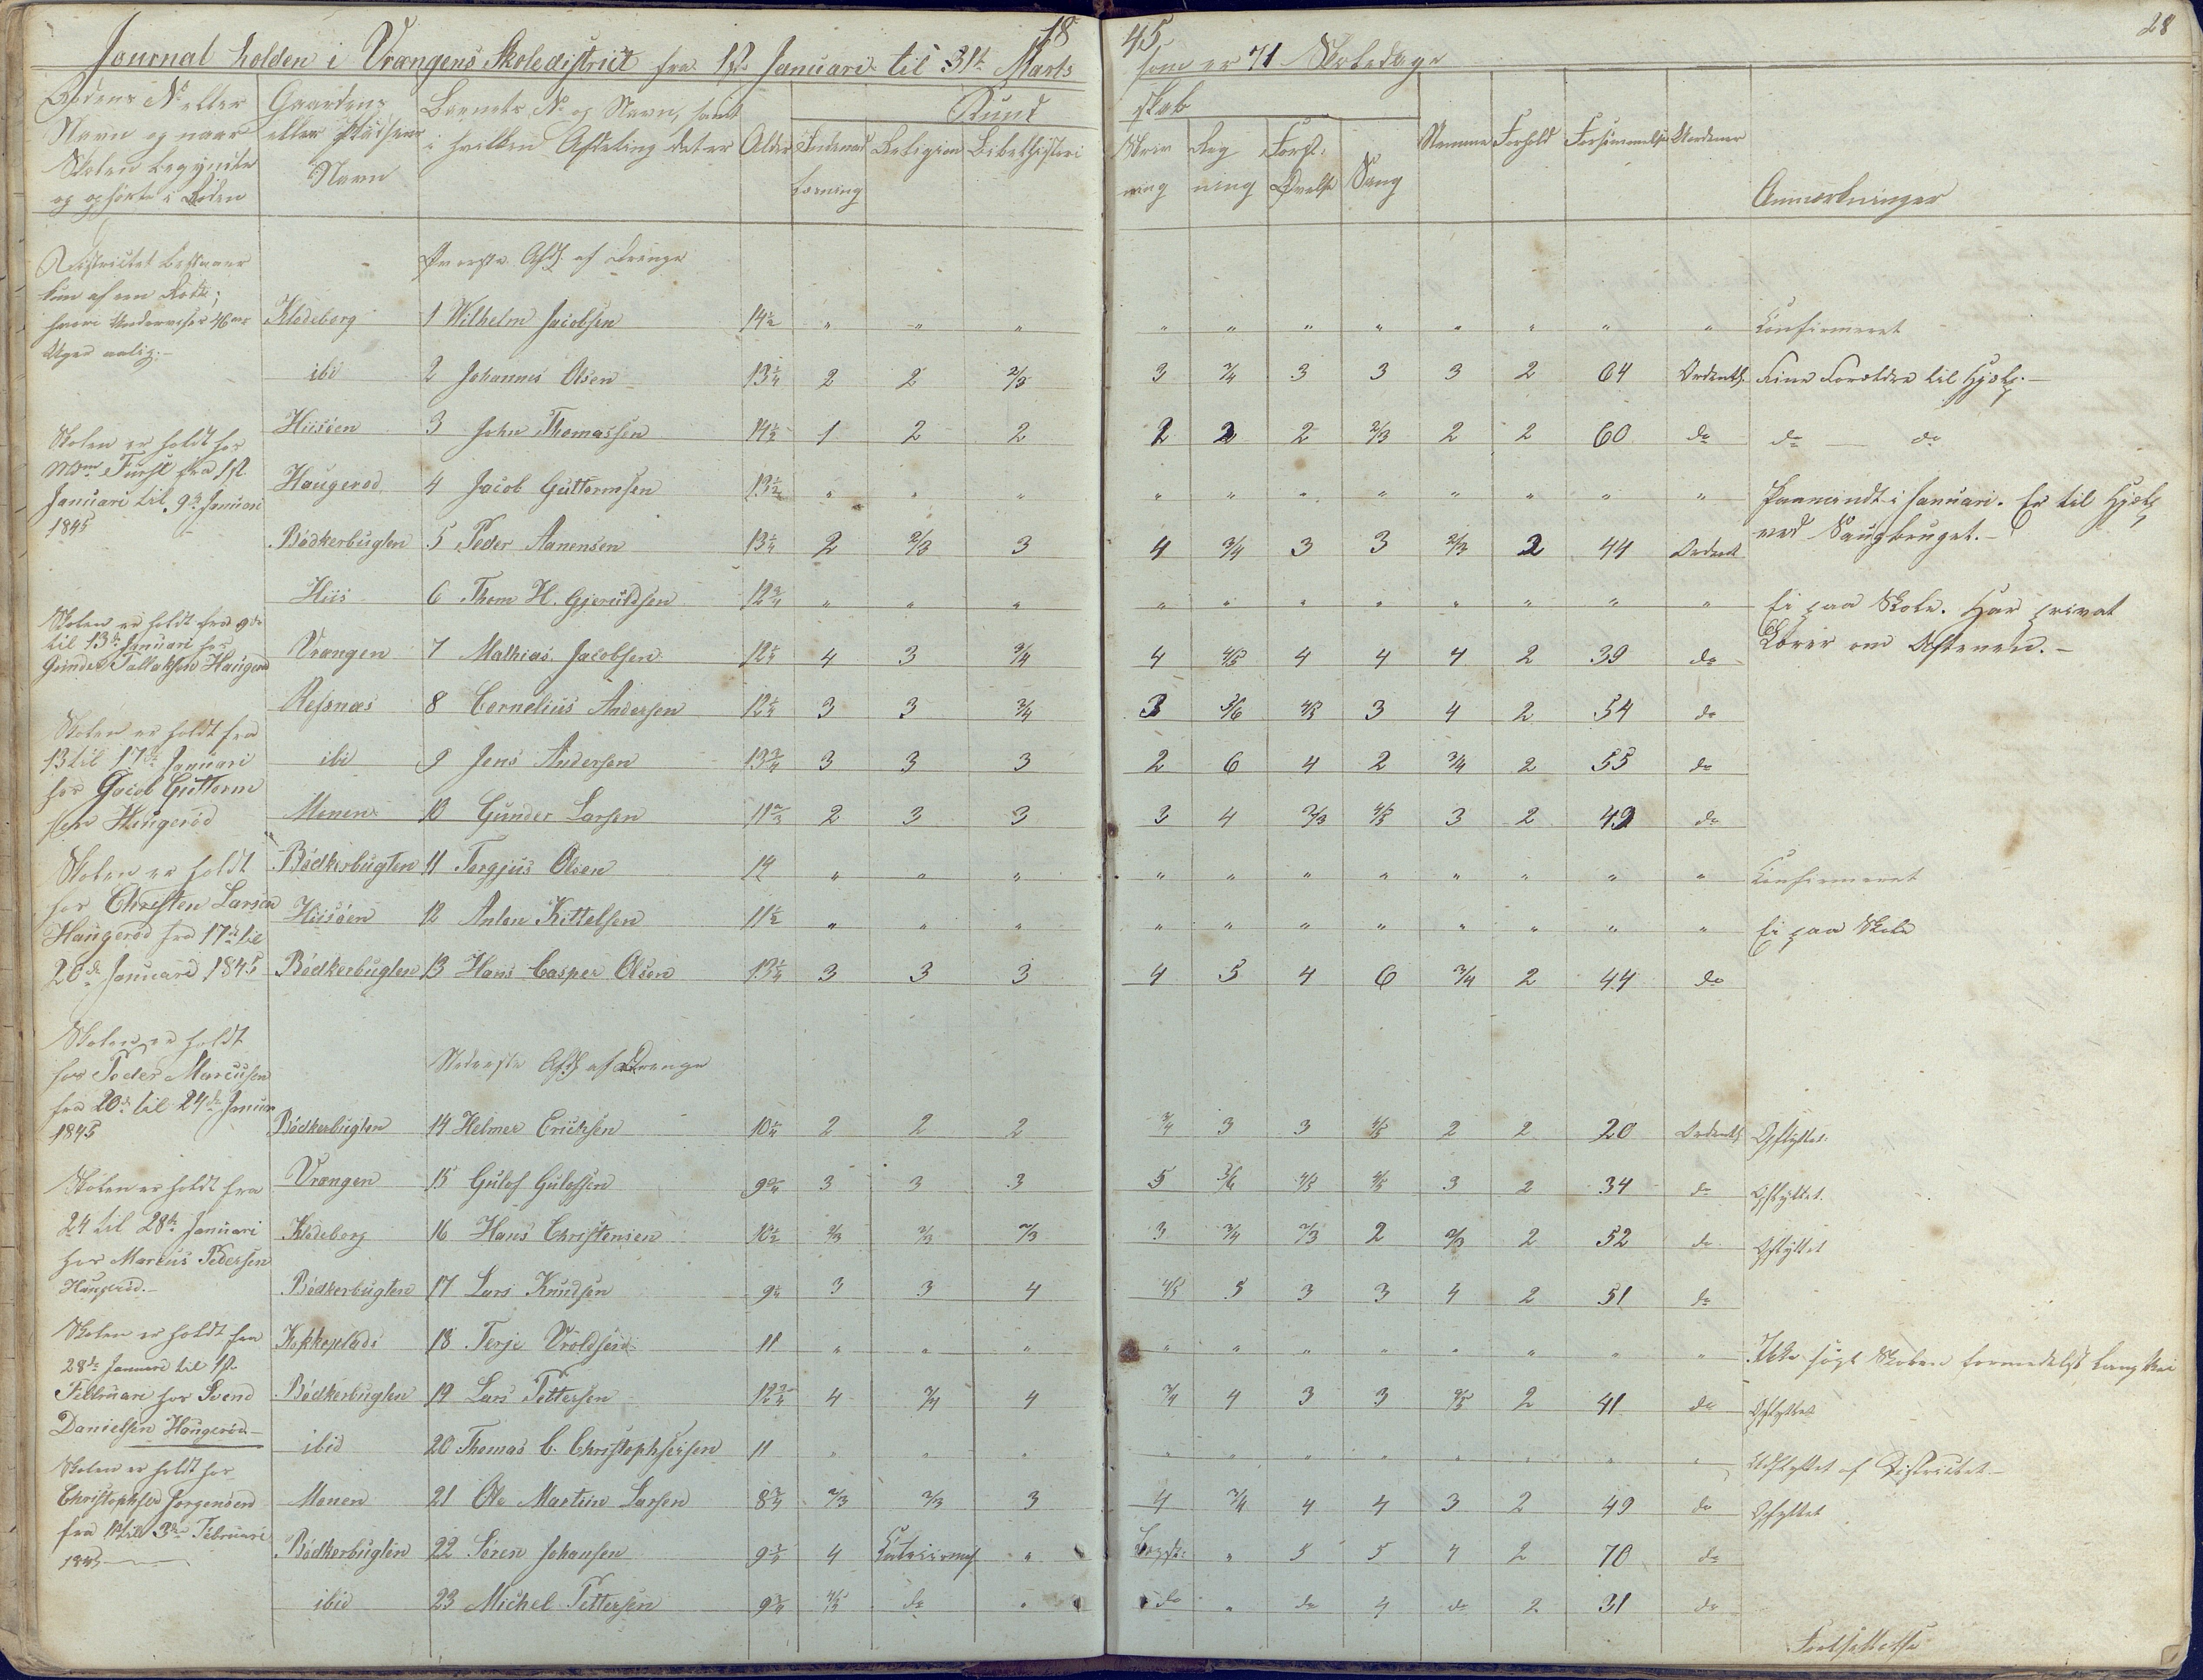 18 45 28
Journal holden i Vrængens Skoledistrict fra 1st Januari til 31t Marts som er 71 Skoledage
Rodens No eller Navn og naar Skolen begyndte og ophørte i Roden
Gaardens eller Pladsens Navn
Barnets No og Navn, samt i hvilken Afdeling det er
Alder
Kund skab
Indenad Læsning
Religion
Bibelhistori
Skrivning
Regning
Forst. Øvelse
Sang
Nemme
Forhold
Forsømmelse
Anmærkninger
Districtet bestaaer
kun af een Rode;
Uger aarlig.
Øverste Afd. af Drenge
Klodeborg 1 Wilhelm Jacobsen 14½ " " " " " " " " " " " Confirmeret
ibid 2 Johannes Olsen 13¼ 2 2 2/3 3 3/4 3 3 3 2 64 Ordentl. Sine Forældre til Hjælp.
Hiisöen 3 John Thomassen 14½ 1 2 2 2 2 2 2/3 2 2 60 do do do
Haugerød 4 Jacob Guttormsen 13½ " " " " " " " " " " " Januari. Er til Hjælp
ved Saugbruget.
Bödkerbugten 5 Peder Aanensen 13¼ 2 2/3 3 4 3/4 3 3 2/3 2 44 Ordentl
Hiis 6 Thom H. Gjeruldsen 12¾ " " " " " " " " " " " Ei paa Skole. Har privat
Lærer om Aftenen.
Vrængen 7 Mathias Jacobsen 12¼ 4 3 3/4 4 4/5 4 4 4 2 39 do
Refsnæs 8 Cornelius Andersen 12¼ 3 3 3/4 3 5/6 4/5 3 4 2 54 do
ibid 9 Jens Andersen 13¾ 3 3 3 2 6 4 2 3/4 2 55 do
Monen 10 Gunder Larsen 11 2 3 3 3 4 2/3 4/5 3 2 49 do
Bödkerbugten 11 Torgjus Olsen 14 " " " " " " " " " " " Confirmeret
Hiisöen 12 Anton Kittelsen 11½ " " " " " " " " " " " Ei paa Skole
Bödkerbugten 13 Hans Casper Olsen 13¼ 3 3 3 4 5 4 6 3/4 2 44 do
Nederste Afd. af Drenge
Bödkerbugten 14 Helmer Erichsen 10¼ 2 2 2 3/4 3 3 4/5 2 2 20 Ordentl Opflyttet
Vrængen 15 Gulof Gulofsen 9¾ 3 3 3 5 5/6 4/5 4/5 3 2 34 do Opflyttet.
Klodeborg 16 Hans Christensen 10½ 2/3 2/3 2/3 3 3/4 2/3 2 2/3 2 52 do Opflyttet
Bödkerbugten 17 Lars Knudsen 9¼ 3 3 4 4/5 5 3 3 4 2 51 do
Kokkeplads 18 Terje Uroldsen 11 " " " " " " " " " " " Ikke søgt Skolen formedelst lang Vei
Bödkerbugten 19 Lars Pettersen 12¾ 4 3/4 4 3/4 4 3 3 4/5 2 41 do Opflyttet
ibid 20 Thomas C. Christophersen 11 " " " " " " " " " " " Udflyttet af Districtet
Monen 21 Ole Martin Larsen 8¾ 2/3 2/3 3 4 3/4 4 4 3 2 49 do Opflyttet
Bödkerbugten 22 Sören Johansen 9¾ 4 " " 5 5 4 2 70 do
ibid 23 Michel Pettersen 9¾ 4/5 do " do " do 4 do 2 31 do
Skolen er holdt hos
Mdm Furst fra 1st
Januari til 9de Januari
1845
Skolen er holdt fra 9de
til 13de Januari hos
Gunder Tallaksen Haugerød
Skolen er holdt fra
13 til 17de Januari
hos Jacob Guttorm
sen Haugerød
Skolen er holdt
hos Christen Larsen
Haugerød fra 17de til
20de Januari 1845
Skolen er holdt
hos Peder Marcusen
fra 20de til 24de Januar
1845
Skolen er holdt fra
24 til 28de Januari
hos Marcus Pedersen
Haugerød.
Skolen er holdt fra
28de Januari til 1st
Februari hos Svend
Danielsen Haugerød
Skolen er holdt hos
Christopher Jörgensen
fra 1st til 3de Februari
1845
Fortsættelse